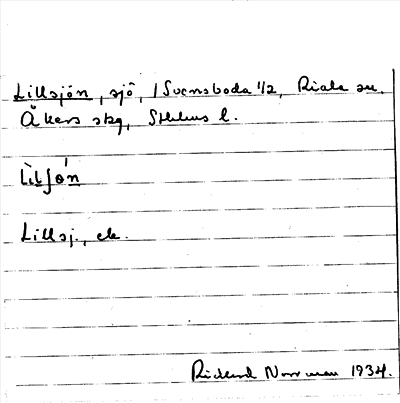 Lillsjön, sjö, i Svensboda 1/2, Riala sn.
Åkers skg, Sthlms l.
Lìlʃǿn
Lillsj., ek.
Rickard Norrman 1934.